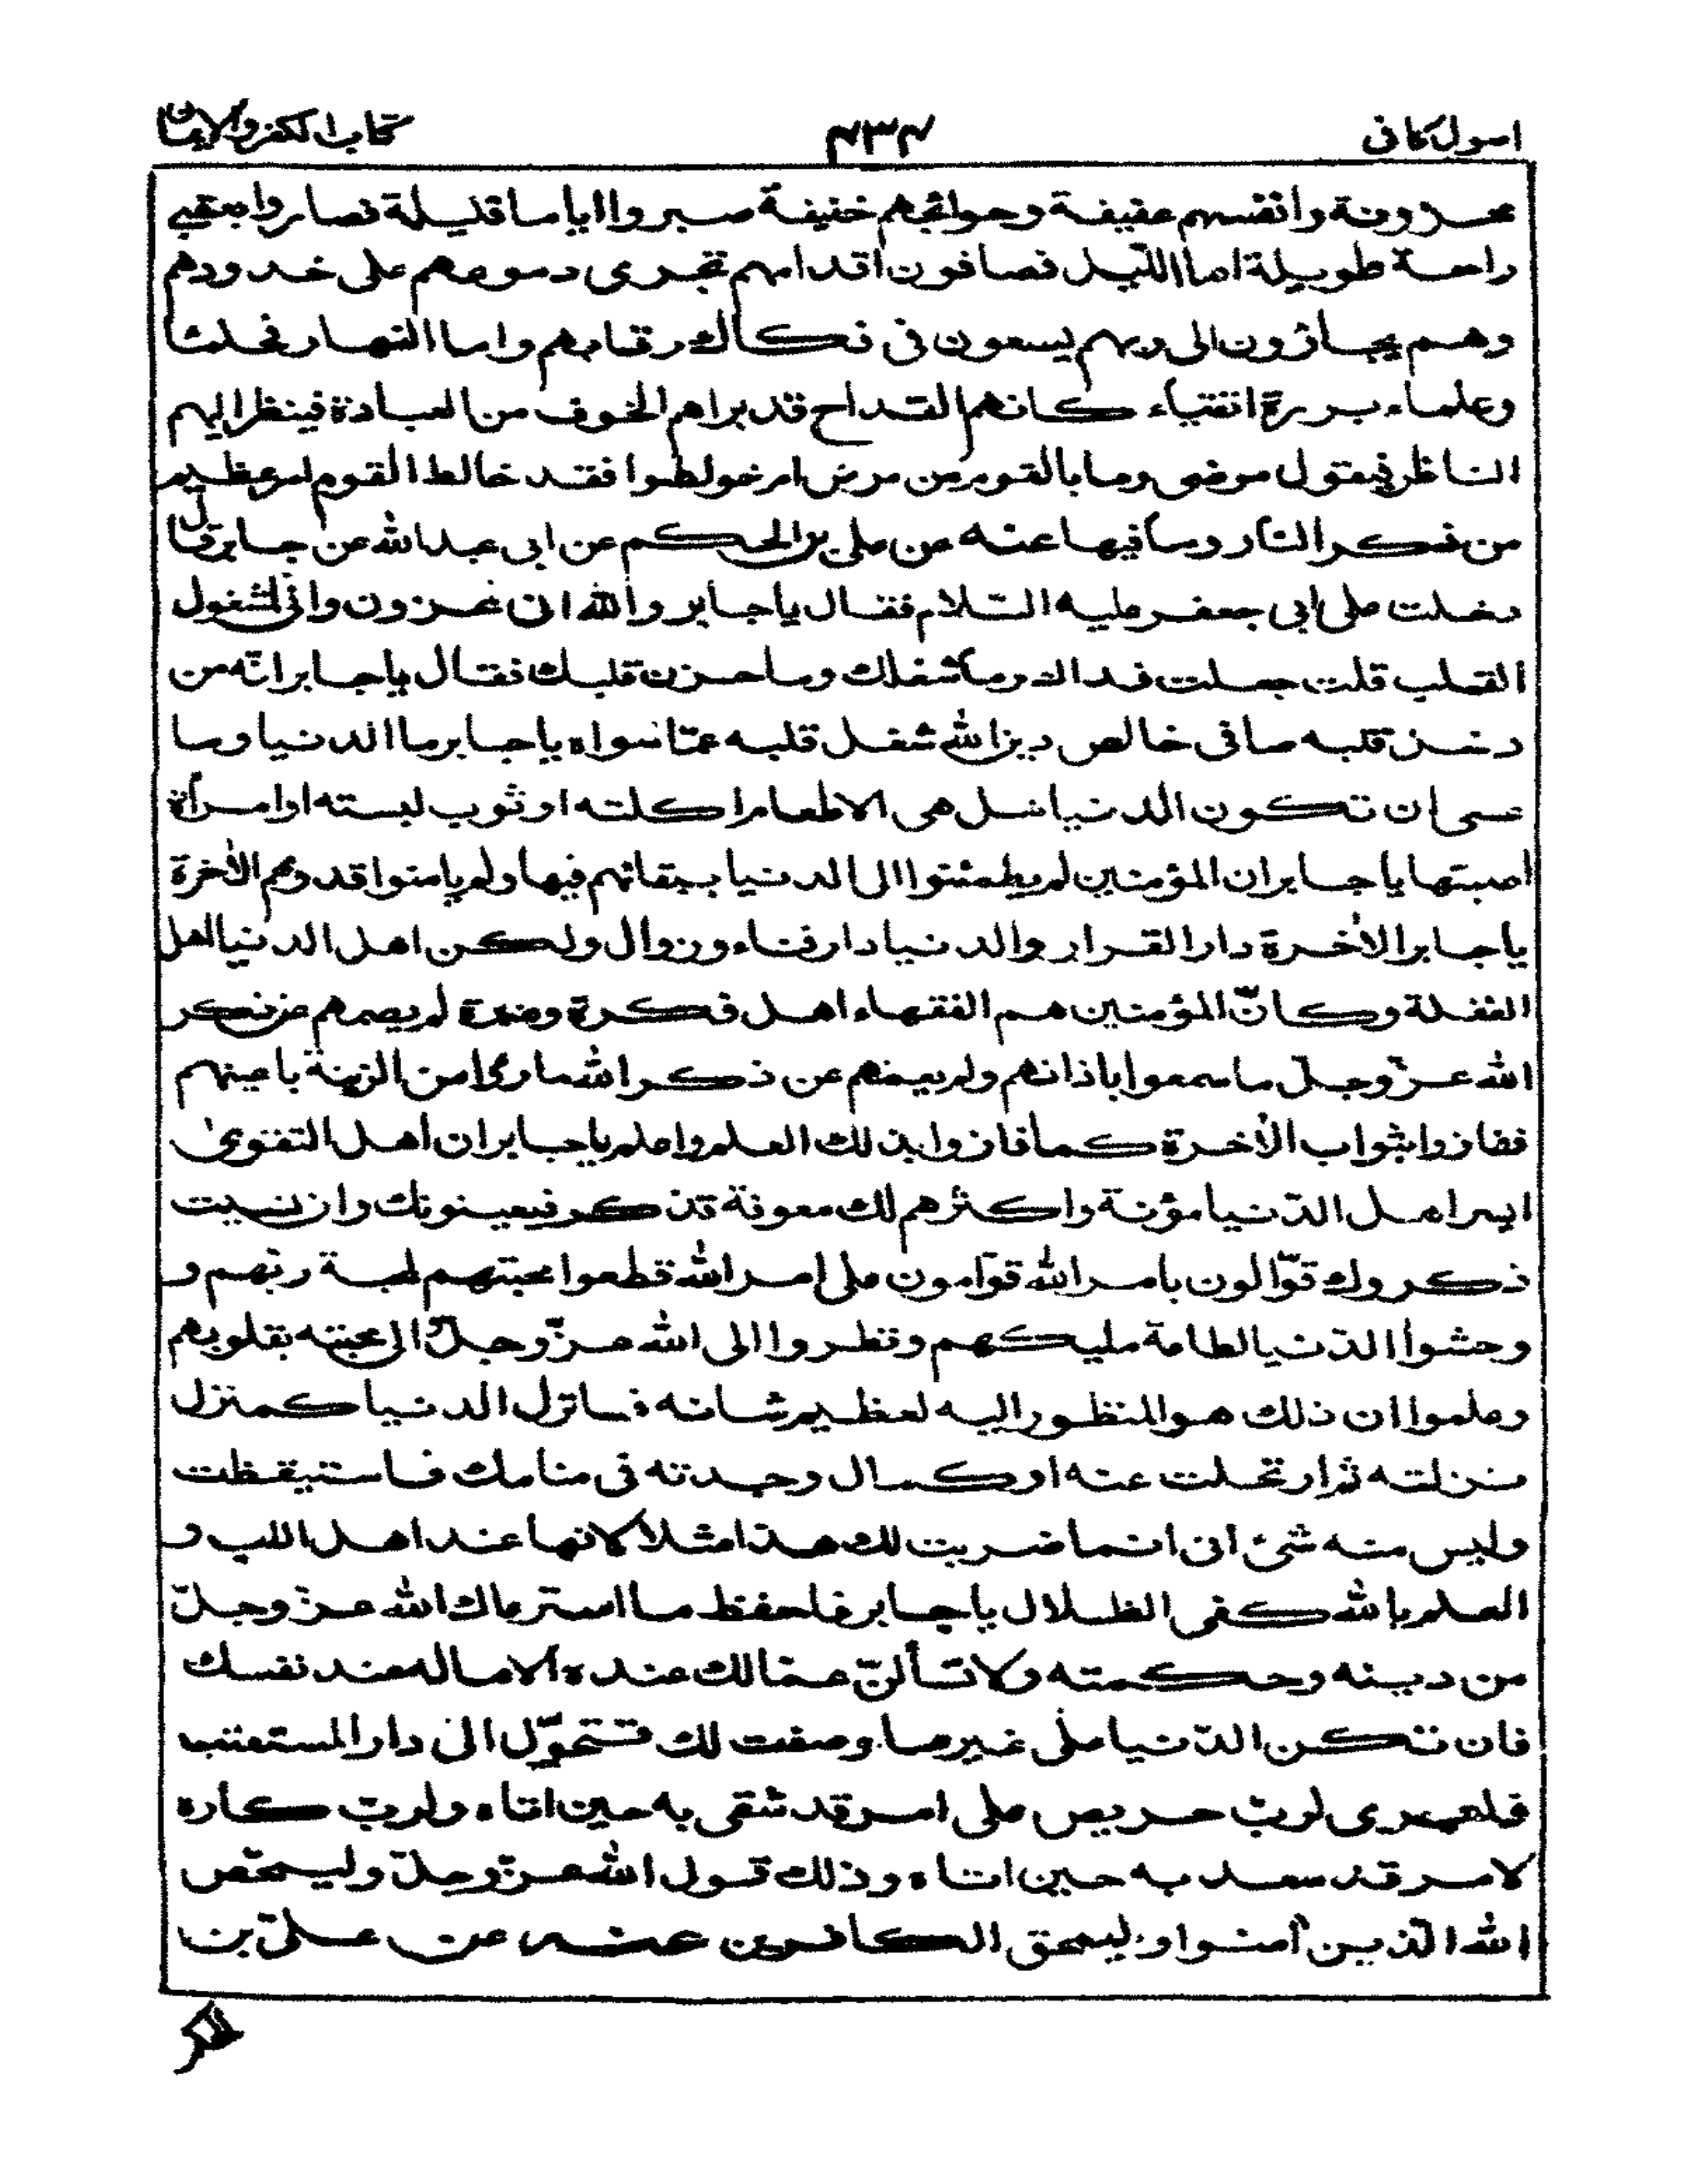 اصول كافى
۴۳۴
كتاب الكفر والايمان
محزونة وانفسهم عفيفة وحوائجهم خفيفة صبروا اياما قليلة فصاروا بعقبى
راحة طويلة اما الليل فصافون اقدامهم تجرى دموعهم على خدودهم
وهم يجأرون الى ربهم يسعون فى فكاك رقابهم واما النهار فحلماء
وعلماء بررة اتقياء كانهم القداح قد براهم الخوف من العبادة فينظر اليهم
الناظر فيقول مرضى وما بالقوم من مرض ام خولطوا فقد خالط القوم امر عظيم
من ذكر النار وما فيها عنه عن على بن الحكم عن ابى عبدالله عن جابر قال
دخلت على ابى جعفر عليه السّلام فقال ياجابر والله انى لمحزون وانّى لمشغول
القلب قلت جعلت فداك وما شغلك وما حزن قلبك فقال ياجابر انّه من
دخل قلبه صافى خالص دين الله شغل قلبه عمّا سواه ياجابر ما الدنيا وما
عسى ان تكون الدنيا هل هى الا طعام اكلته او ثوب لبسته او امرأة
اصبتها ياجابر ان المؤمنين لم يطمئنوا الى الدنيا ببقائهم فيها ولم يامنوا قدومهم الاخرة
ياجابر الاخرة دار القرار والدنيا دار فناء وزوال ولكن اهل الدنيا اهل
الغفلة وكانّ المؤمنين هم الفقهاء اهل فكرة وعبرة لم يصمهم عن ذكر
الله عزّ وجلّ ما سمعوا باذانهم ولم يعمهم عن ذكر الله ما رأوا من الزينة باعينهم
ففازوا بثواب الاخرة كما فازوا بذلك العلم واعلم ياجابر ان اهل التقوى
ايسر اهل الدّنيا مؤنة واكثرهم لك معونة تذكر فيعينونك وان نسيت
ذكروك قوّالون بامر الله قوّامون على امر الله قطعوا محبتهم لمحبة ربّهم و
وحشوا الدّنيا لطاعة مليكهم ونظروا الى الله عزّ وجلّ والى محبته بقلوبهم
وعلموا ان ذلك هو المنظور اليه لعظيم شانه فانزل الدنيا كمنزل
نزلته ثم ارتحلت عنه او كمال وجدته فى منامك فاستيقظت
وليس منه شئ انى انما ضربت لك هذا مثلا لانها عند اهل اللب و
العلم بالله كفى الظلال ياجابر فاحفظ ما استرعاك الله عزّ وجلّ
من دينه وحكمته ولا تسألنّ عمّا لك عنده الا ما له عند نفسك
فان تكن الدّنيا على غير ما وصفت لك فتحوّل الى دار المستعتب
فلعمرى لربّ حريص على امر قد شقى به حين اتاه ولربّ كاره
لامر قد سعد به حين اتاه وذلك قول الله عزّ وجلّ وليمحّص
الله الّذين آمنوا ويمحق الكافرين عنه عن علىّ بن